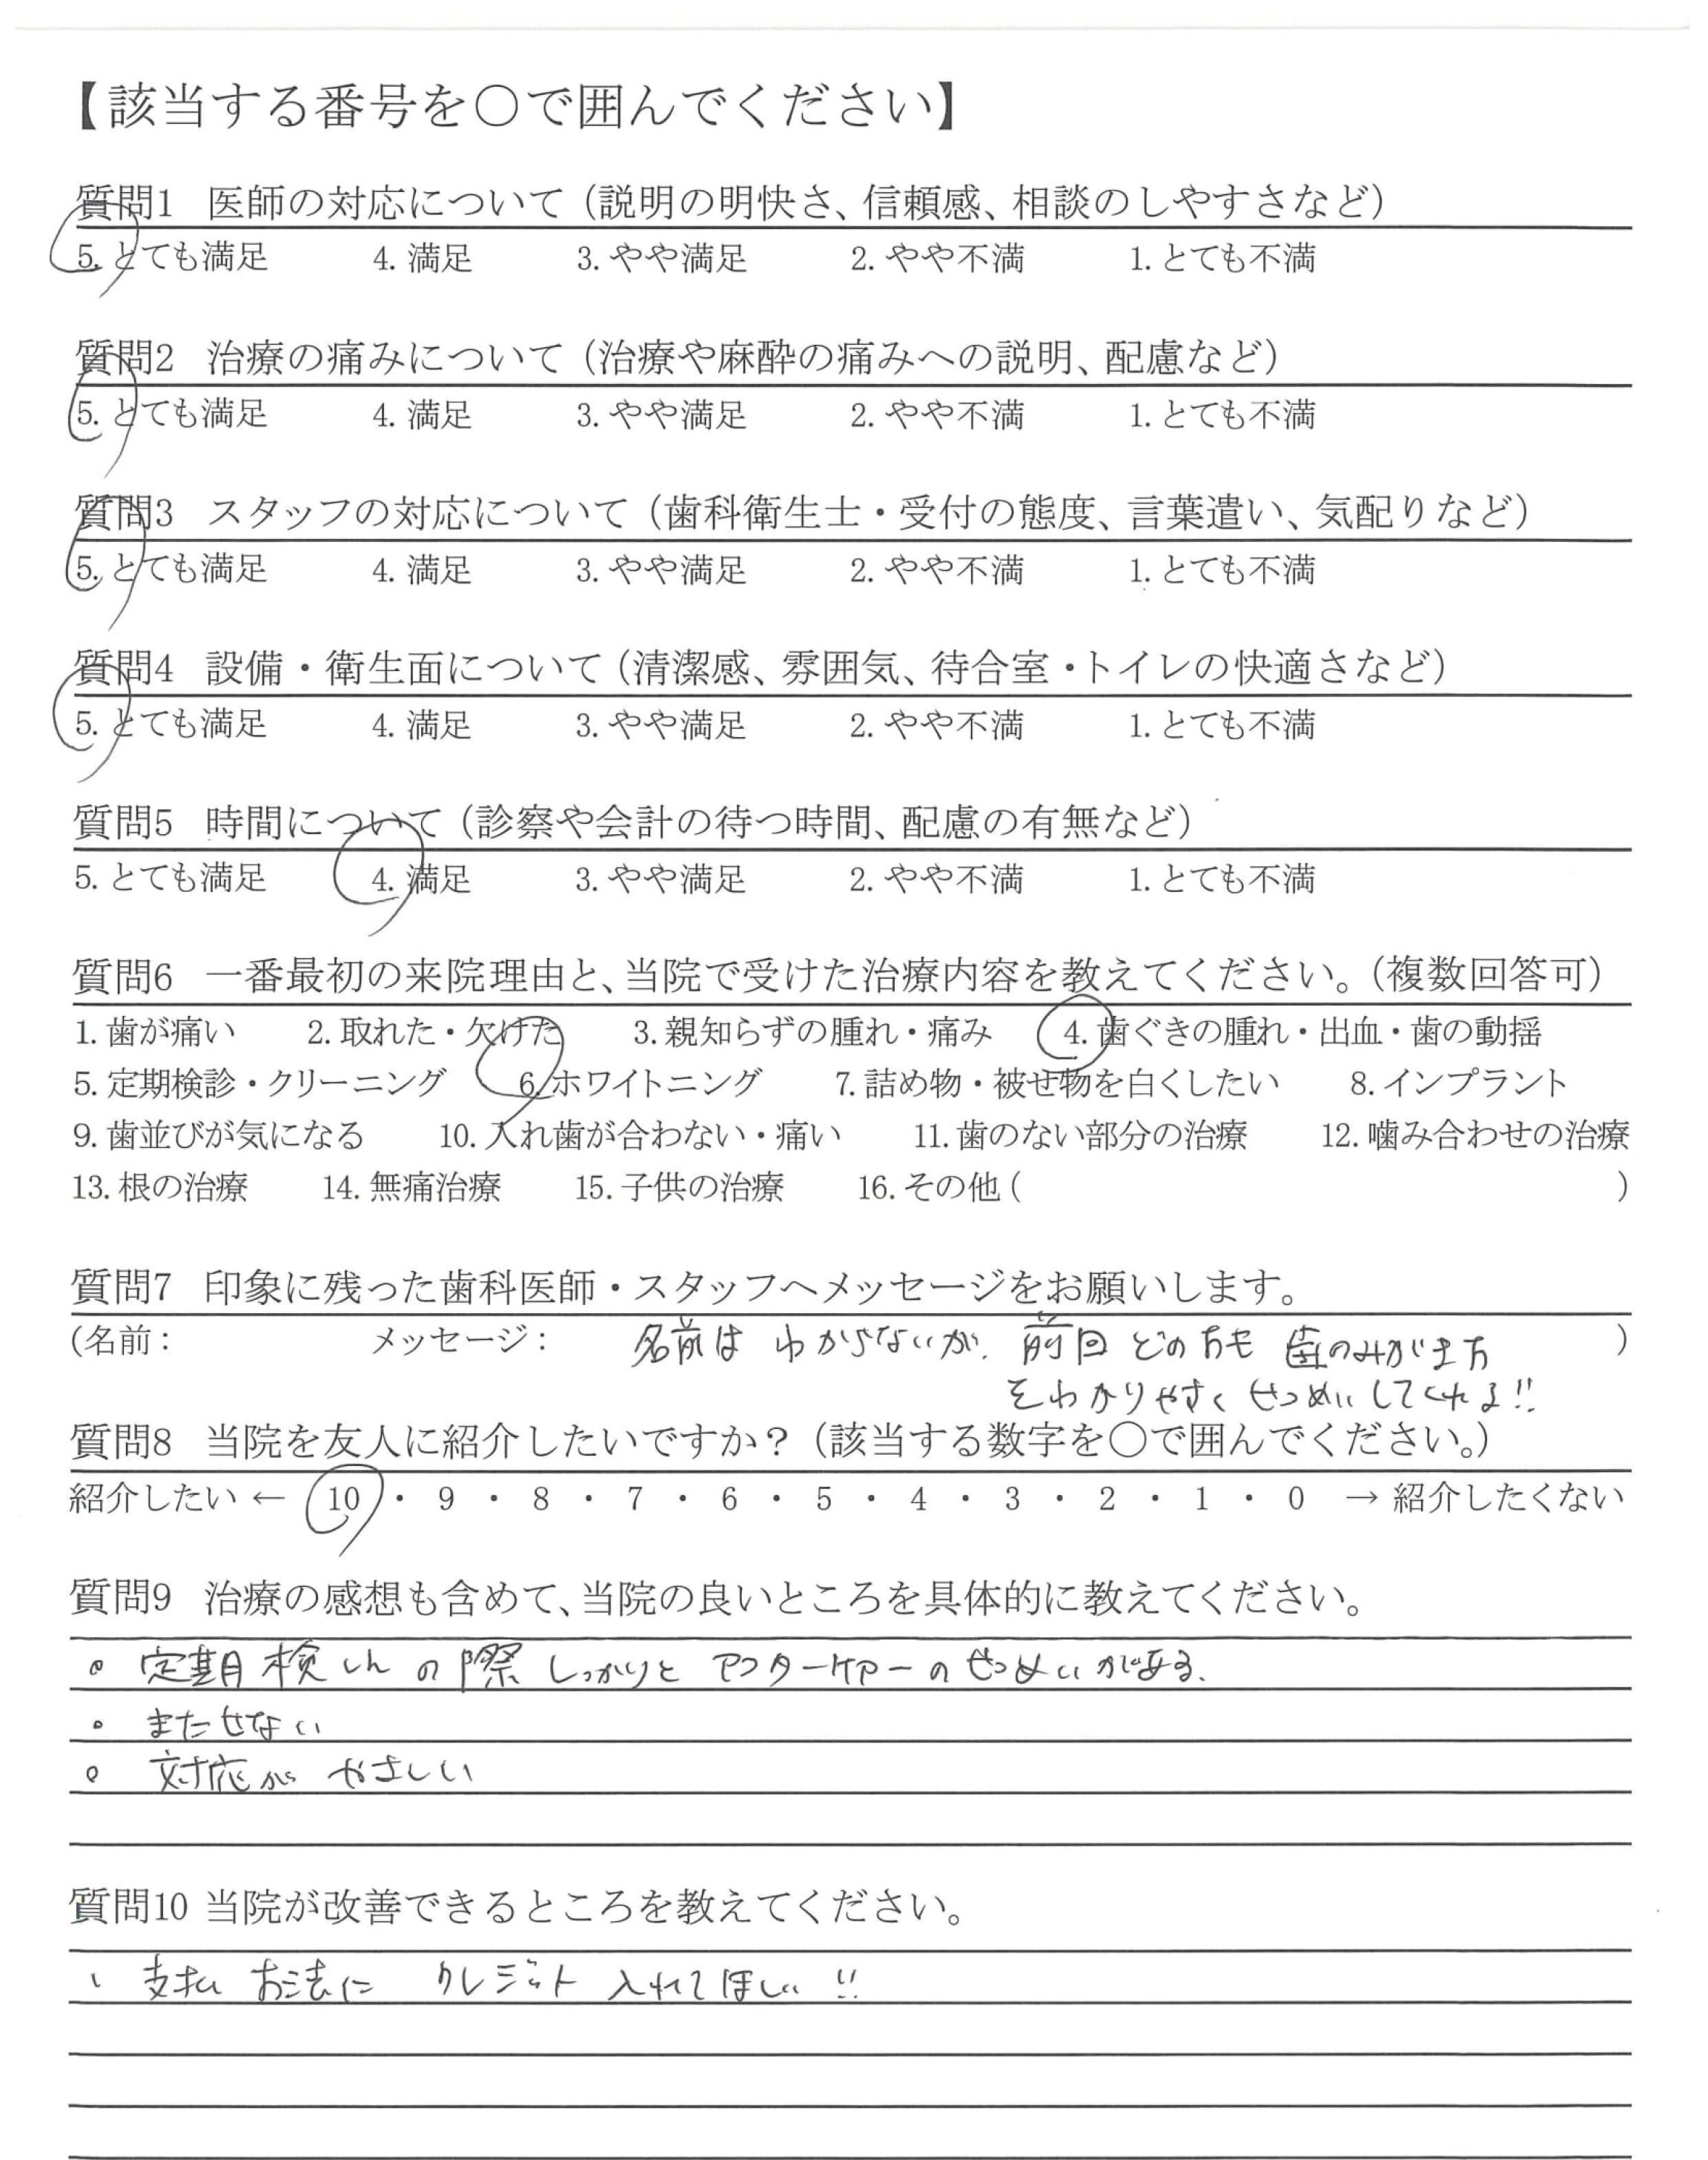 【該当する番号を○で囲んでください】
質問1 医師の対応について（説明の明快さ、信頼感、相談のしやすさなど）
5.とても満足 4.満足 3.やや満足 2.やや不満 1.とても不満
質問2 治療の痛みについて（治療や麻酔の痛みへの説明、配慮など）
5.とても満足 4.満足 3.やや満足 2.やや不満 1.とても不満
質問3 スタッフの対応について（歯科衛生士・受付の態度、言葉遣い、気配りなど）
5.とても満足 4.満足 3.やや満足 2.やや不満 1.とても不満
質問4 設備・衛生面について（清潔感、雰囲気、待合室・トイレの快適さなど）
5.とても満足 4.満足 3.やや満足 2.やや不満 1.とても不満
質問5 時間について（診察や会計の待つ時間、配慮の有無など）
5.とても満足 4.満足 3.やや満足 2.やや不満 1.とても不満
質問6 一番最初の来院理由と、当院で受けた治療内容を教えてください。（複数回答可）
1.歯が痛い 2.取れた・欠けた 3.親知らずの腫れ・痛み 4.歯ぐきの腫れ・出血・歯の動揺
5.定期検診・クリーニング 6.ホワイトニング 7.詰め物・被せ物を白くしたい 8.インプラント
9.歯並びが気になる 10.入れ歯が合わない・痛い 11.歯のない部分の治療 12.噛み合わせの治療
13.根の治療 14.無痛治療 15.子供の治療 16.その他（ ）
質問7 印象に残った歯科医師・スタッフへメッセージをお願いします。
（名前： メッセージ： 名前は わからないが、前回 どの方も 歯のみがき方 ）
をわかりやすく せつめいしてくれる!!
質問8 当院を友人に紹介したいですか？（該当する数字を○で囲んでください。）
紹介したい ← 10 ・ 9 ・ 8 ・ 7 ・ 6 ・ 5 ・ 4 ・ 3 ・ 2 ・ 1 ・ 0 → 紹介したくない
質問9 治療の感想も含めて、当院の良いところを具体的に教えてください。
。定期検しんの際 しっかりと アフターケアーの せつめいがある.
。またせない
。対応が やさしい
質問10 当院が改善できるところを教えてください。
、支払 方法に クレジット 入れてほしい !!